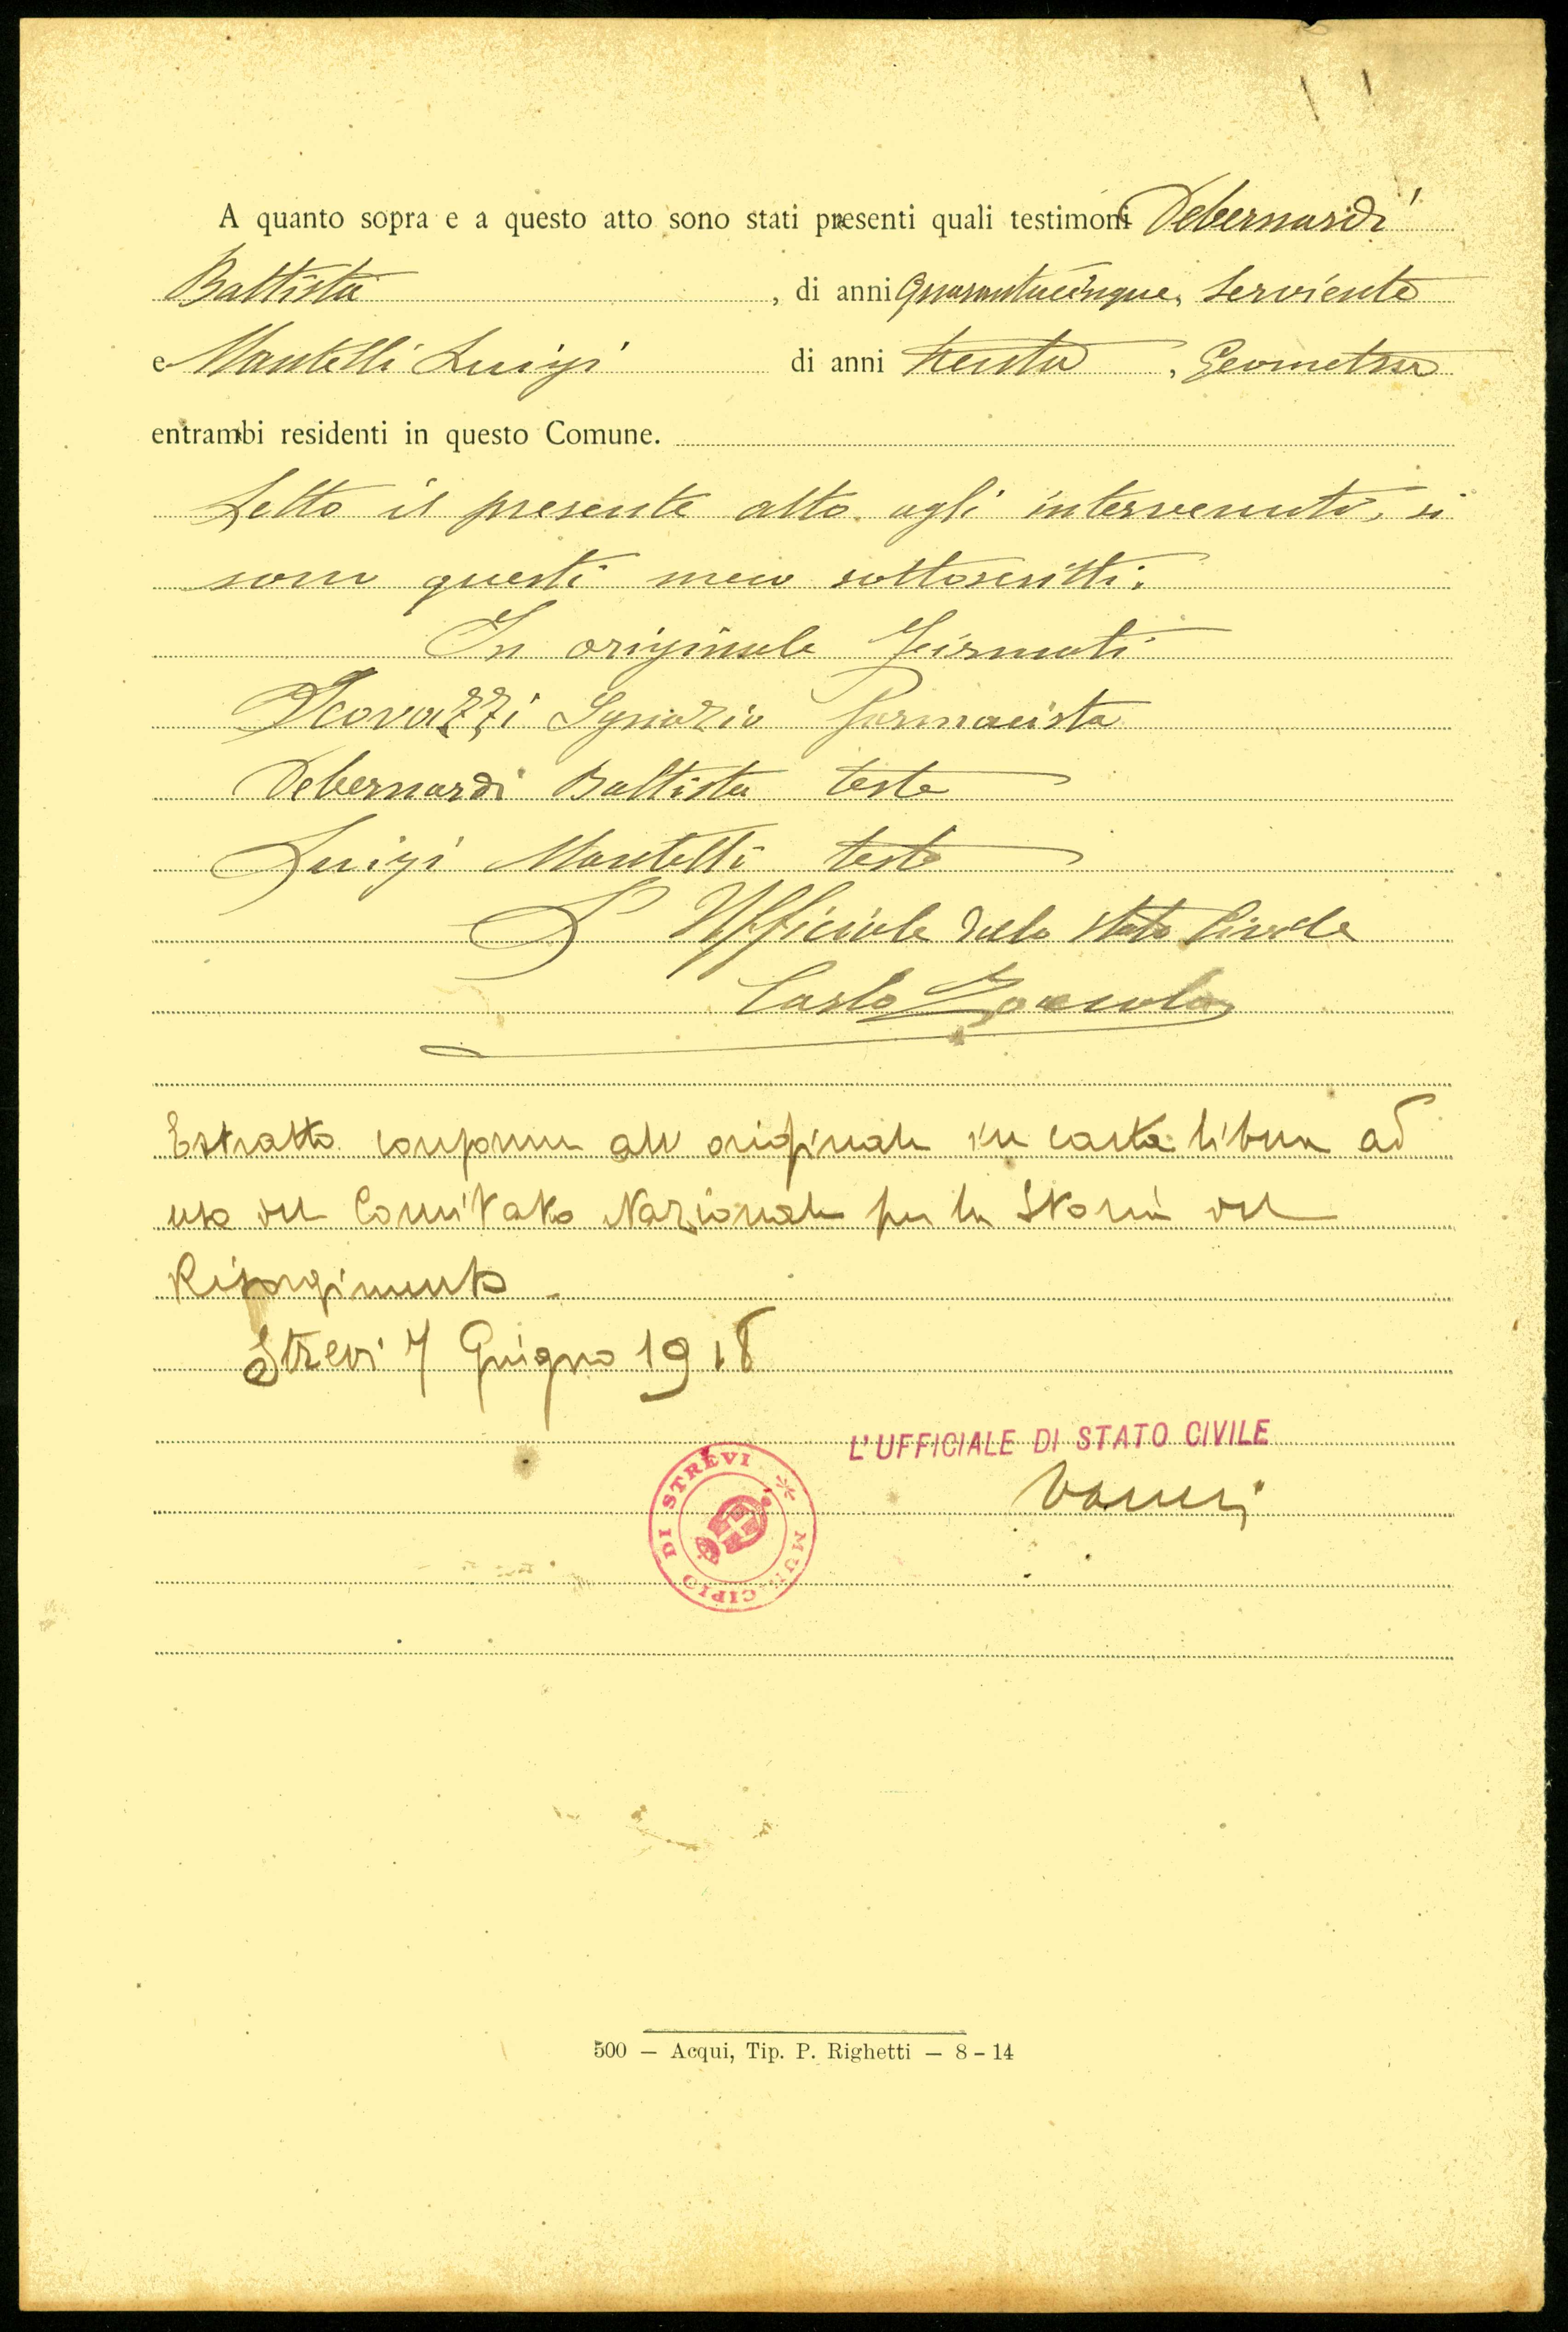 A quanto sopra e a questo atto sono stati presenti quali testimoni Debernardi
Battista, di anni Quarantacinque, Serviente
e Mantelli Luigi di anni trenta, Geometra
entrambi residenti in questo Comune.
Letto il presente atto agli intervenuti, si
sono questi meco sottoscritti.
In originale Firmati
Scovazzi Ignazio Farmacista
Debernardi Battista teste
Luigi Mantelli teste
L'Ufficiale dello Stato Civile
Carlo
Estratto conforme all'originale in carta libera ad
uso del Comitato Nazionale per la Storia del
Risorgimento.
Strevi 7 Giugno 1918
L'UFFICIALE DI STATO CIVILE
MUNICIPIO DI STREVI
500 — Acqui, Tip. P. Righetti — 8 - 14